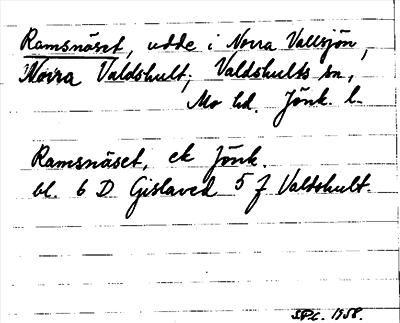 Ramsnäset, udde i Norra Vallsjön,
Norra Valdshult, Valdshults sn,
Mo hd. Jönk. l.
Ramsnäset, ek Jönk.
bl. 6 D Gislaved 5 f Valdshult.
1958.